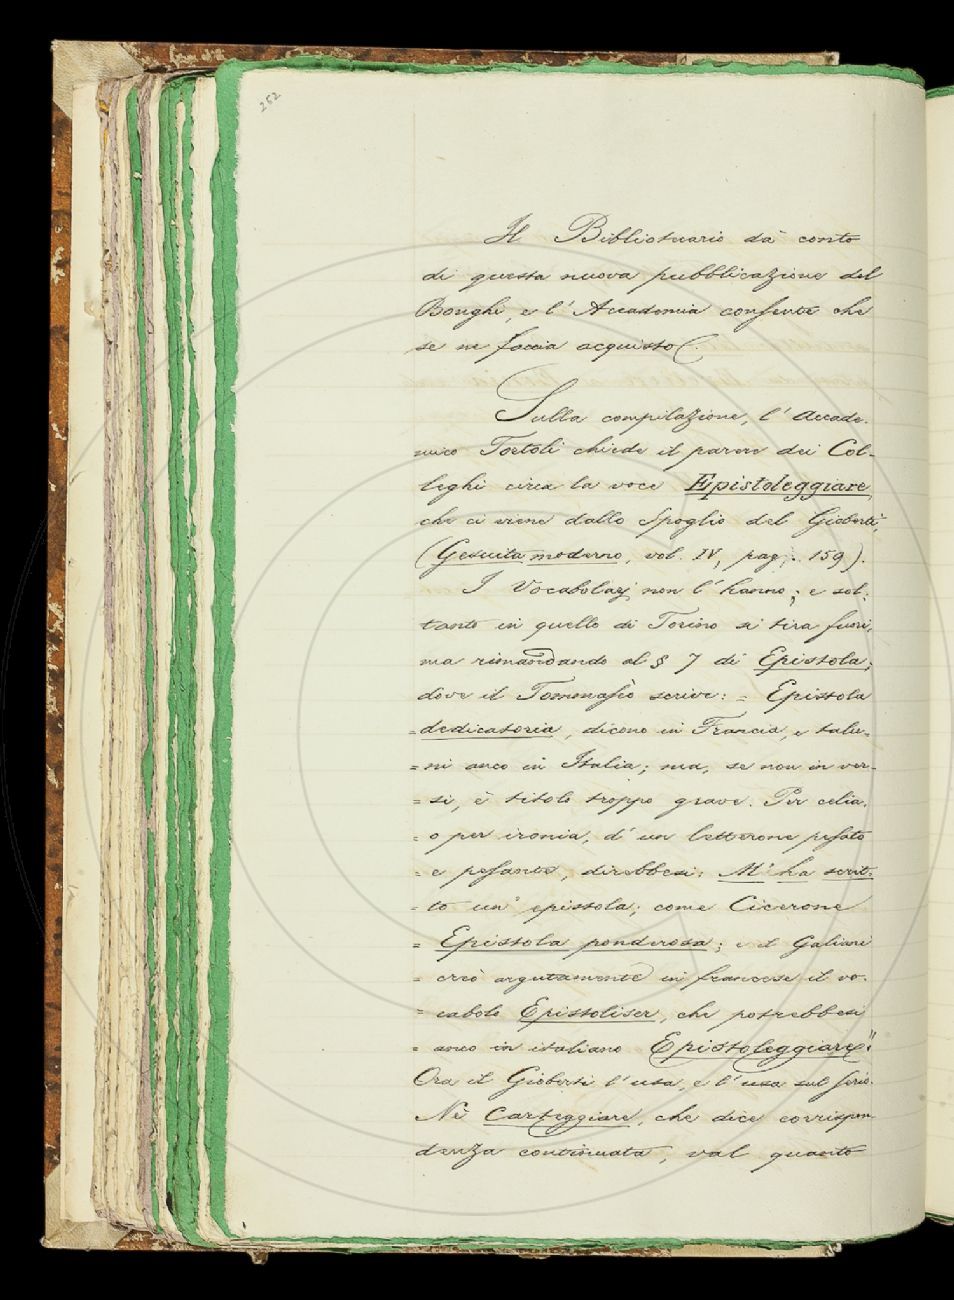 262
Il Bibliotecario dà conto
di questa nuova pubblicazione del
Bonghi, e l'Accademia consente che
se ne faccia acquisto.
Sulla compilazione, l'Accade-
mico Tortoli chiede il parere dei Col-
leghi circa la voce Epistoleggiare
che ci viene dallo Spoglio del Gioberti,
(Gesuita moderno, vol. IV, pag. 159).
I Vocabolarj non l'hanno; e sol-
tanto in quello di Torino si tira fuori,
ma rimandando al § 7 di Epistola;
dove il Tommaséo scrive: = Epistola
= dedicatoria, dicono in Francia, e talu-
= ni anco in Italia; ma, se non in ver-
= si, è titolo troppo grave. Per celia,
= o per ironia, d'un letterone pesato
= e pesante, direbbesi: M'ha scrit-
= to un'epistola; come Cicerone
= Epistola ponderosa; e il Galiani
= creò argutamente in francese il vo-
= cabolo Epistoliser, che potrebbesi
= anco in italiano Epistoleggiare"
Ora il Gioberti l'usa, e l'usa sul serio.
Nè Carteggiare, che dice corrispon-
denza continuata, val quanto